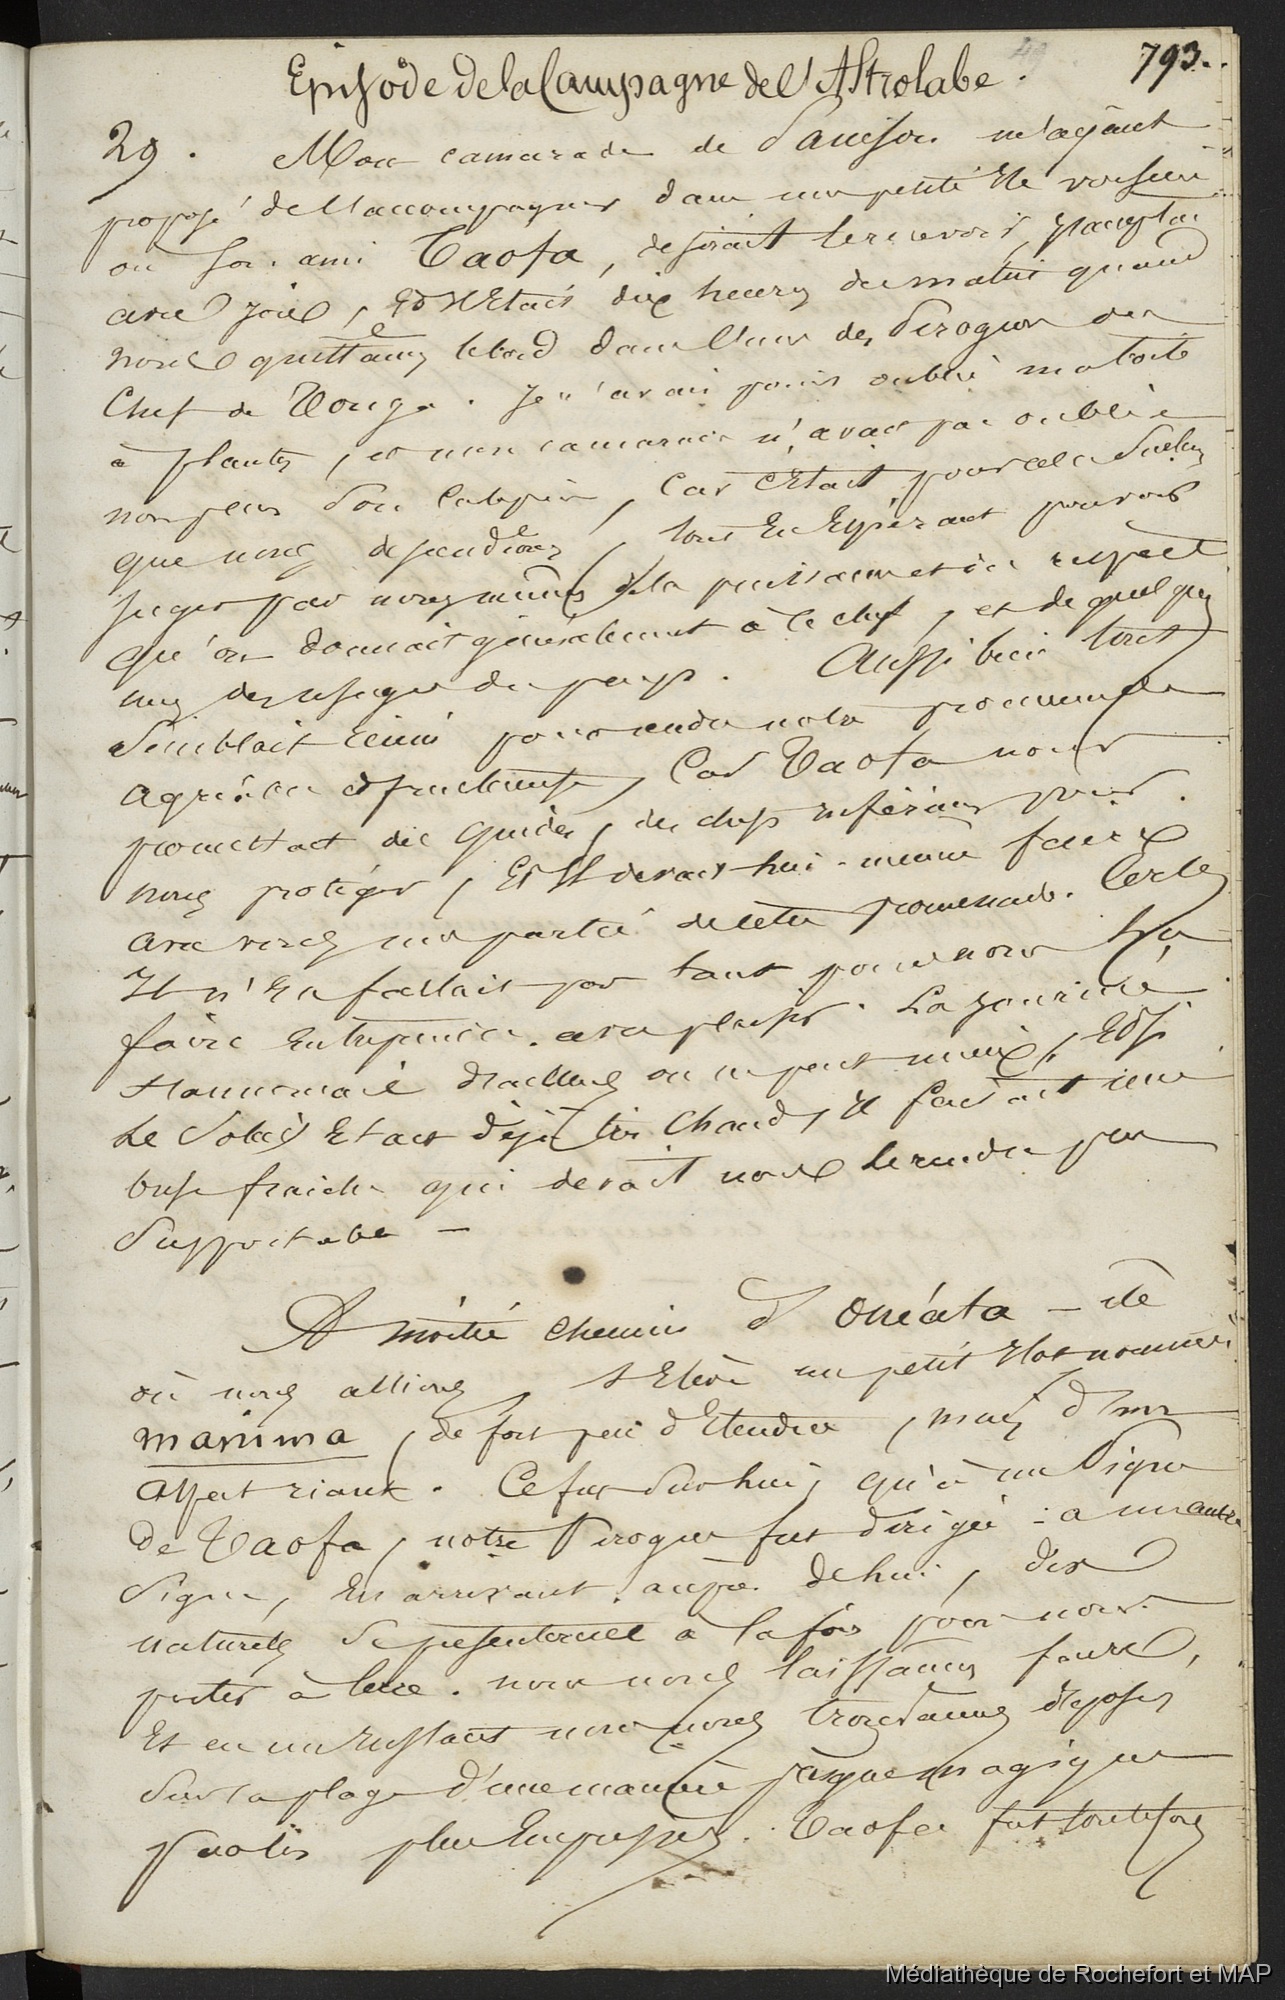 Episode de la Campagne de l'Astrolabe.
793.
29. Mon camarade de Sainson m'ayant
proposé de l'accompagner dans une petite Ile voisine
où son ami Taofa, desirait le recevoir, j'acceptai
avec joie, et Il Etait dix heures du matin quand
nous quittâmes le bord dans l'une des Pirogues du
Chef de Tonga. Je n'avais point oublié ma boite
à plantes, et mon camarade n'avait pas oublié
non plus son calepin, Car c'Etait pour cela
que nous descendions, tout En Espérant pouvoir
juger par nous mêmes de la puissance et du respect
qu'on donnait généralement à ce chef, et de quelques
uns des usages du pays. Aussi bien tout
semblait réuni pour rendre notre promenade
agréable et fructueuse, Car Taofa nous
promettait des guides, des chefs inférieurs pour
nous protéger, Et Il devait lui-même faire
avec nous une partie de cette promenade. Certes
Il n'En fallait pas tant pour nous la
faire Entreprendre avec plaisir. La journée
s'annonçait d'ailleurs on ne peut mieux, Et Si
le Soleil Etait déjà très chaud, il faisait une
brise fraiche qui devait nous le rendre plus
supportable —
A moitié chemin d'Onéata — île
où nous allions, s'Elève un petit Ilot nommé
manima, de fort peu d'Etendue, mais d'un
aspect riant. Ce fut sur lui, qu'à un signe
de Taofa, notre Pirogue fut dirigée : a un autre
signe, En arrivant auprès de lui, dix
naturels se présenterent à la fois pour nous
porter à terre. nous nous laissâmes faire,
Et en un Instant nous nous trouvâmes déposés
sur la plage d'une manière presque magique
plus Empressés. Taofa fut toutefois
Médiathèque de Rochefort et MAP